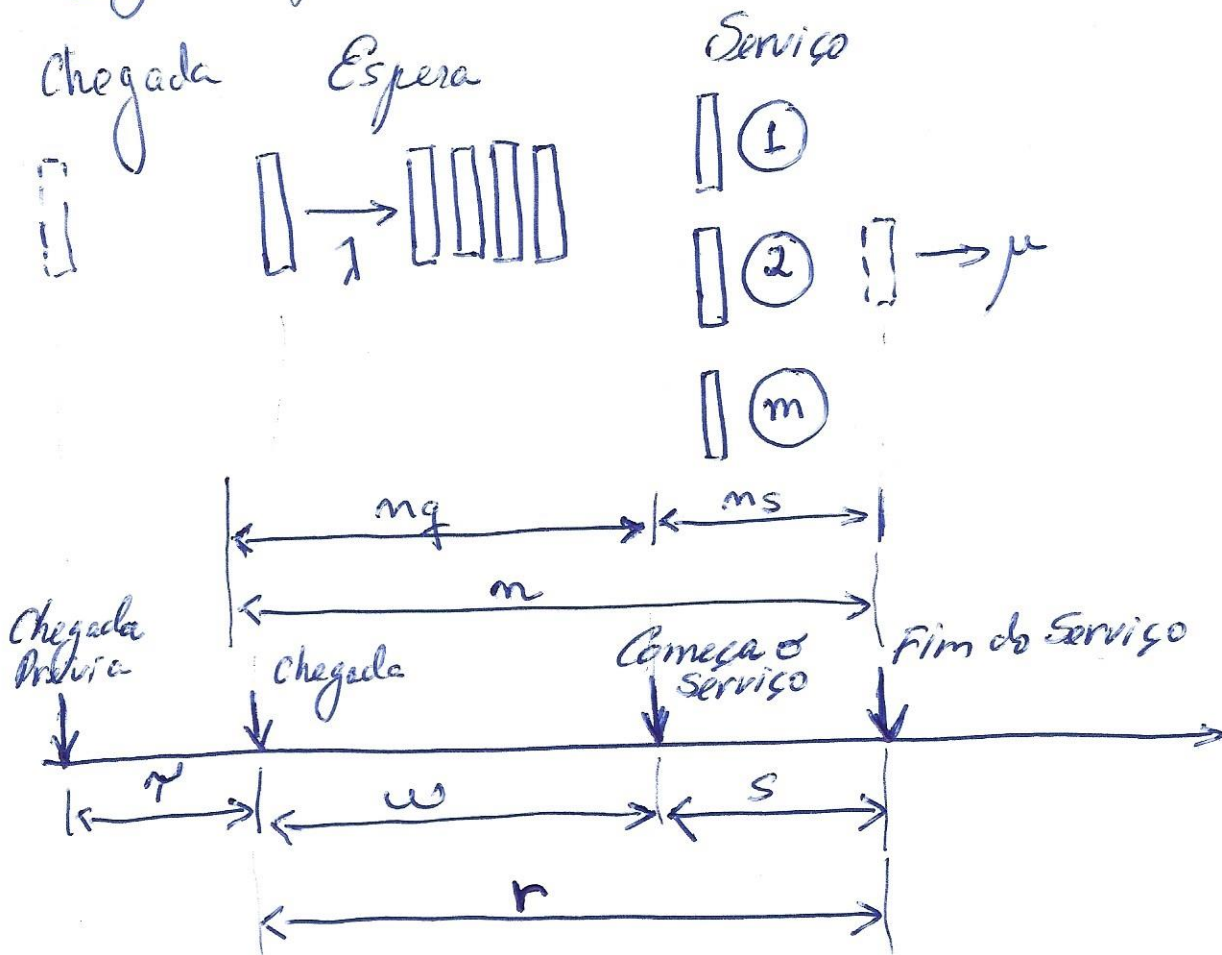 Chegada Espera Serviço
1
λ
2
μ
m
nq ns
n
Chegada
Prévia
Chegada
Começa o
serviço
Fim do Serviço
τ w s
r